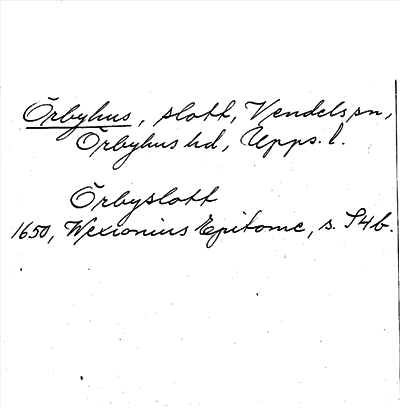 Örbyhus, slott, Vendels sn,
Örbyhus hd, Upps. l.
Örbyslott
1650, Wexionius Epitome, s. S4b.